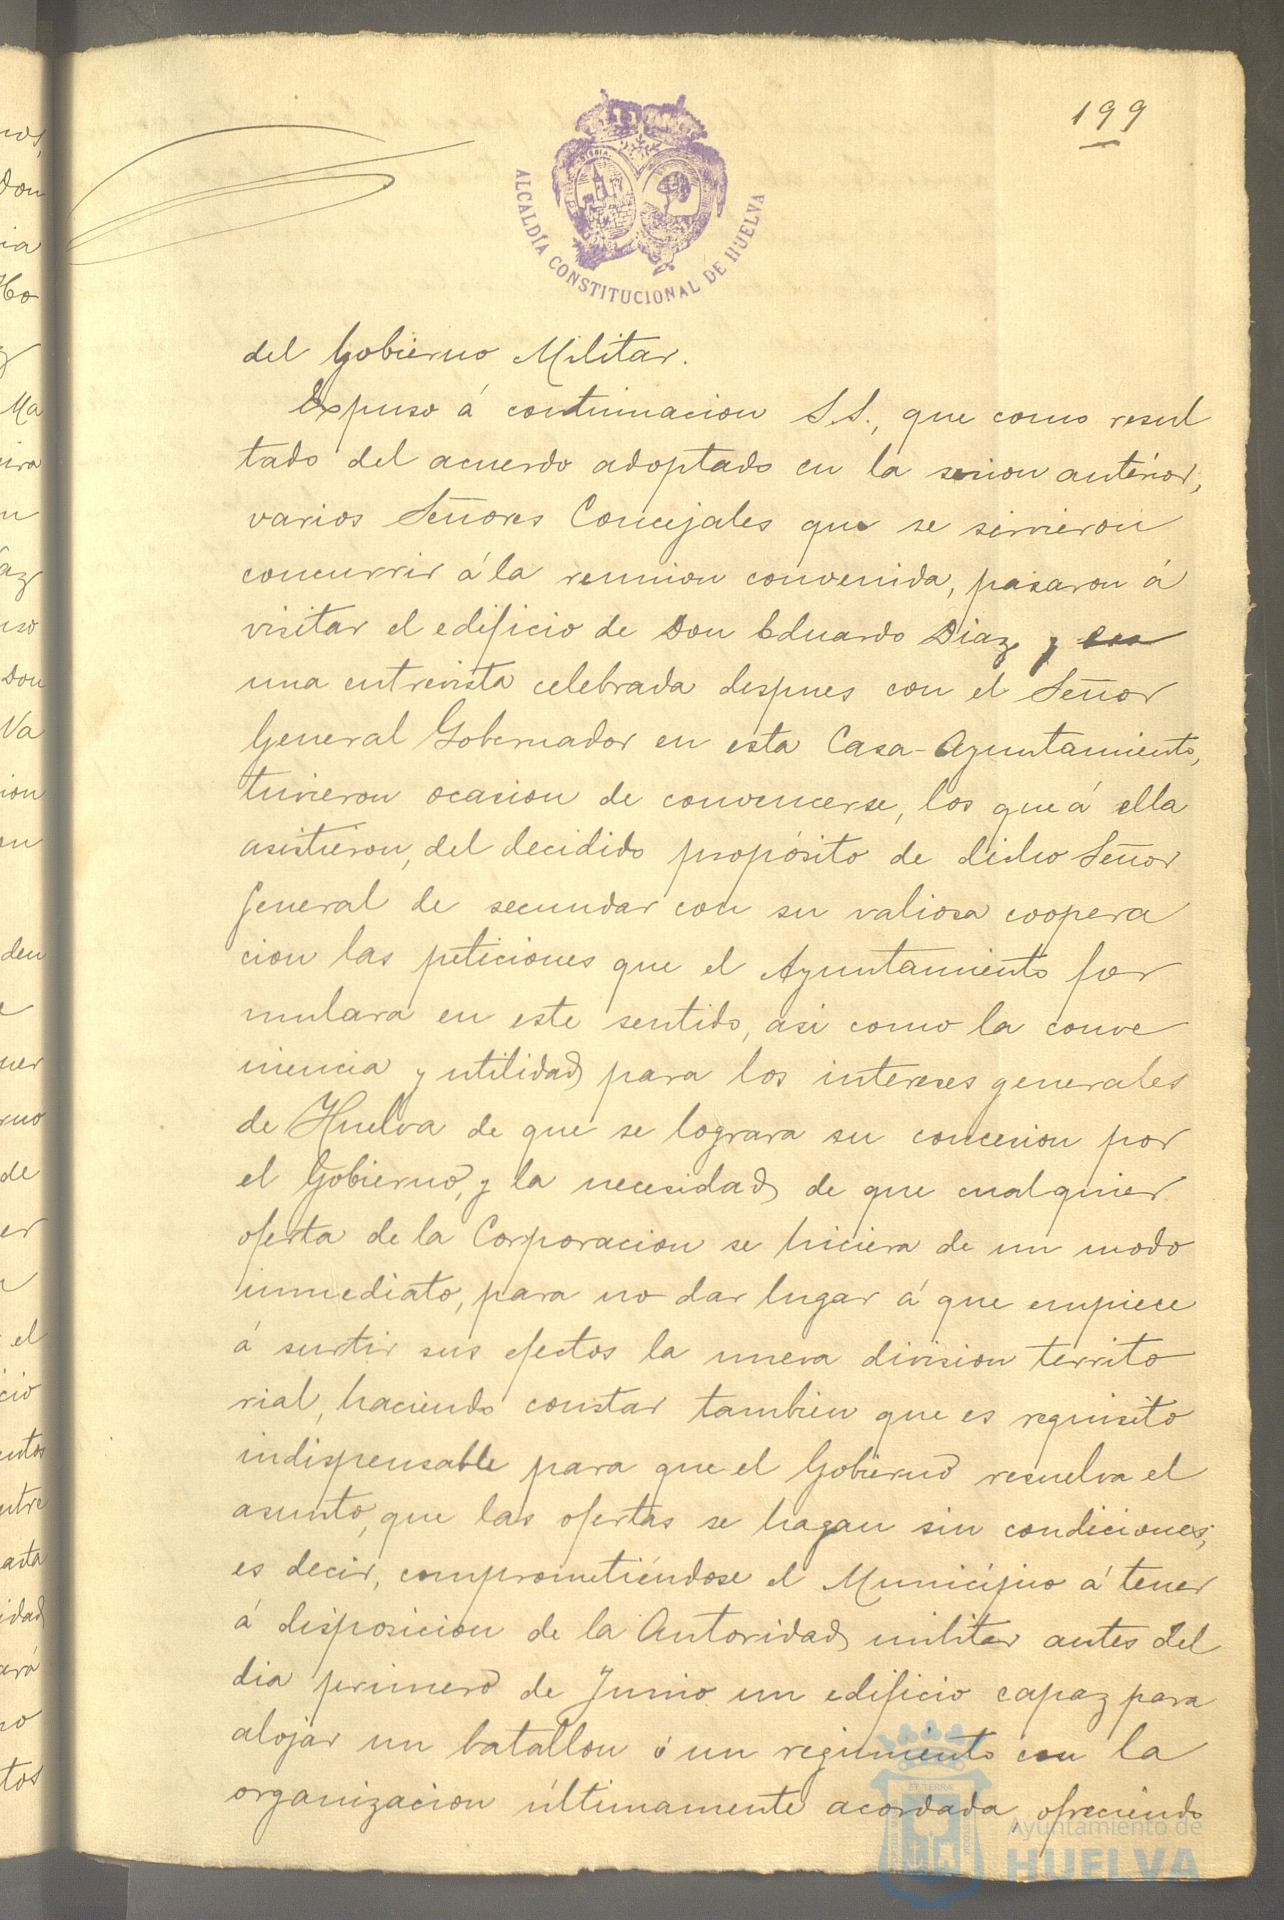 199
ALCALDÍA CONSTITUCIONAL DE HUELVA
del Gobierno Militar.
Expuso á continuacion S.S., que como resul
tado del acuerdo adoptado en la sesion anterior,
varios Señores Concejales que se sirvieron
concurrir á la reunion convenida, pasaron á
visitar el edificio de Don Eduardo Diaz y
una entrevista celebrada despues con el Señor
General Gobernador en esta Casa-Ayuntamiento,
tuvieron ocasion de convencerse, los que á ella
asistieron, del decidido propósito de dicho Señor
General de secundar con su valiosa coopera
cion las peticiones que el Ayuntamiento for
mulara en este sentido, asi como la conve
niencia y utilidad para los intereses generales
de Huelva de que se lograra su concesion por
el Gobierno, y la necesidad de que cualquier
oferta de la Corporacion se hiciera de un modo
inmediato, para no dar lugar á que empiece
á surtir sus efectos la nueva division territo
rial, haciendo constar tambien que es requisito
indispensable para que el Gobierno resuelva el
asunto, que las ofertas se hagan sin condiciones;
es decir, comprometiéndose el Municipio á tener
á disposicion de la Autoridad militar antes del
dia primero de Junio un edificio capaz para
alojar un batallon ó un regimiento con la
organizacion últimamente acordada, ofreciendo
Ayuntamiento de
HUELVA